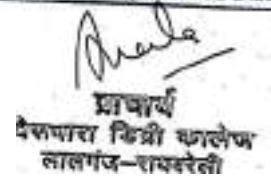 प्राचार्य
बैसवारा डिग्री कालेज
लालगंज-रायबरेली